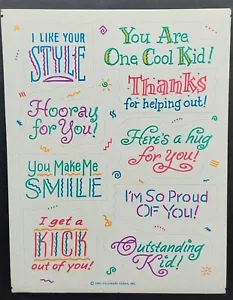 I LIKE YOUR
STYLE
You Are
One Cool Kid!
Thanks
for helping out!
Hooray
for You!
Here's a hug
for You!
You Make Me
SMILE
I'm So Proud
OF You!
I get a
KICK
out of you!
Outstanding
Kid!